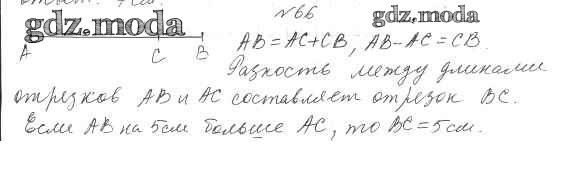 №66
gdz.moda gdz.moda
A C B AB = AC+CB, AB-AC=CB.
Разность между длинами
отрезков AB и AC составляет отрезок BC.
Если AB на 5см больше AC, то BC=5см.